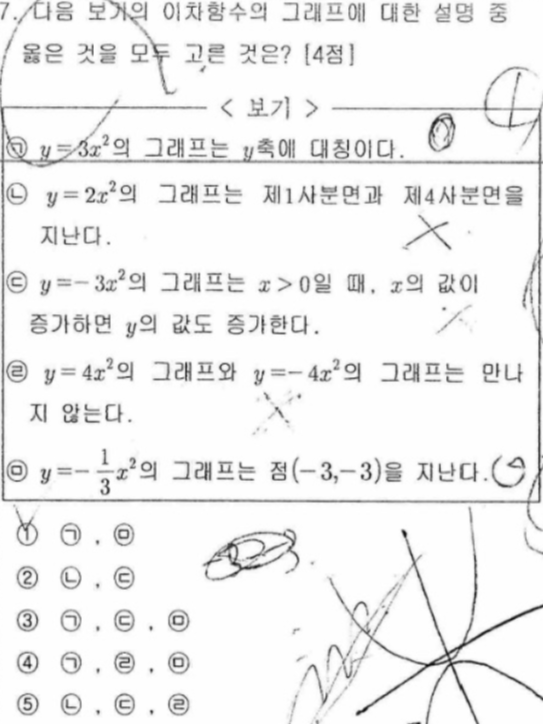 7. 다음 보기의 이차함수의 그래프에 대한 설명 중
옳은 것을 모두 고른 것은? [4점]
< 보기 >
㉠ y=3x²의 그래프는 y축에 대칭이다.
㉡ y=2x²의 그래프는 제1사분면과 제4사분면을
지난다.
㉢ y=-3x²의 그래프는 x>0일 때, x의 값이
증가하면 y의 값도 증가한다.
㉣ y=4x²의 그래프와 y=-4x²의 그래프는 만나
지 않는다.
㉤ y=-\frac{1}{3}x²의 그래프는 점(-3,-3)을 지난다.
① ㉠, ㉤
② ㉡, ㉢
③ ㉠, ㉢, ㉤
④ ㉠, ㉣, ㉤
⑤ ㉡, ㉢, ㉣